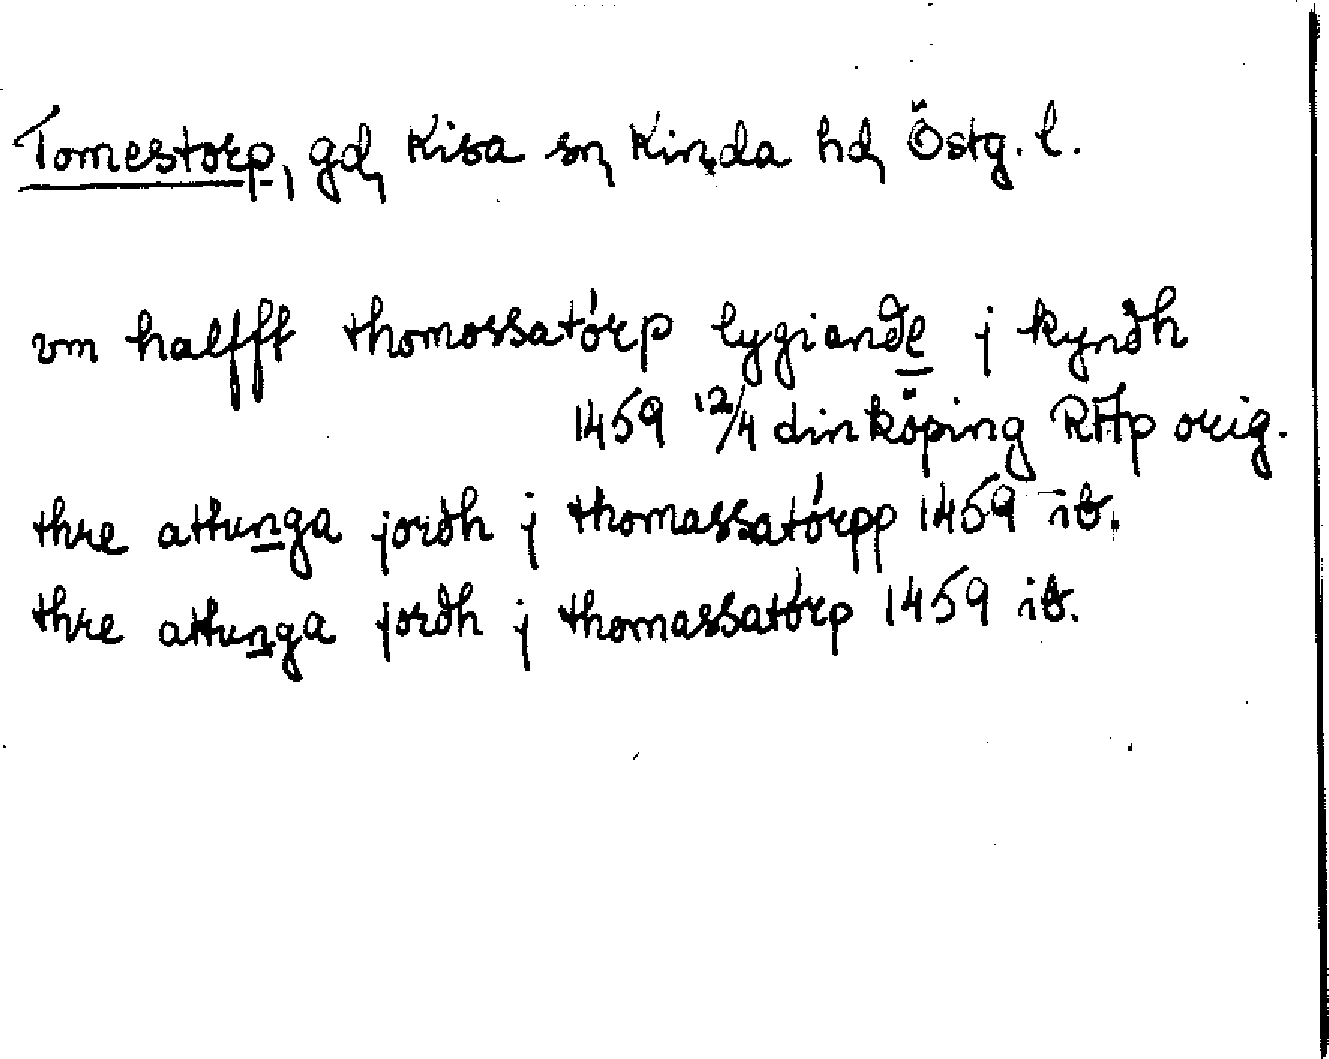 Tomestorp, gd, Kisa sn, Kinda hd, Östg. l.
vm halfft thomossatórp lygiandhe j kyndh
1459 12/4 Linköping RAp orig.
thre attunga jordh j thomassatórpp 1459 ib.
thre attunga jordh j thomassatórp 1459 ib.